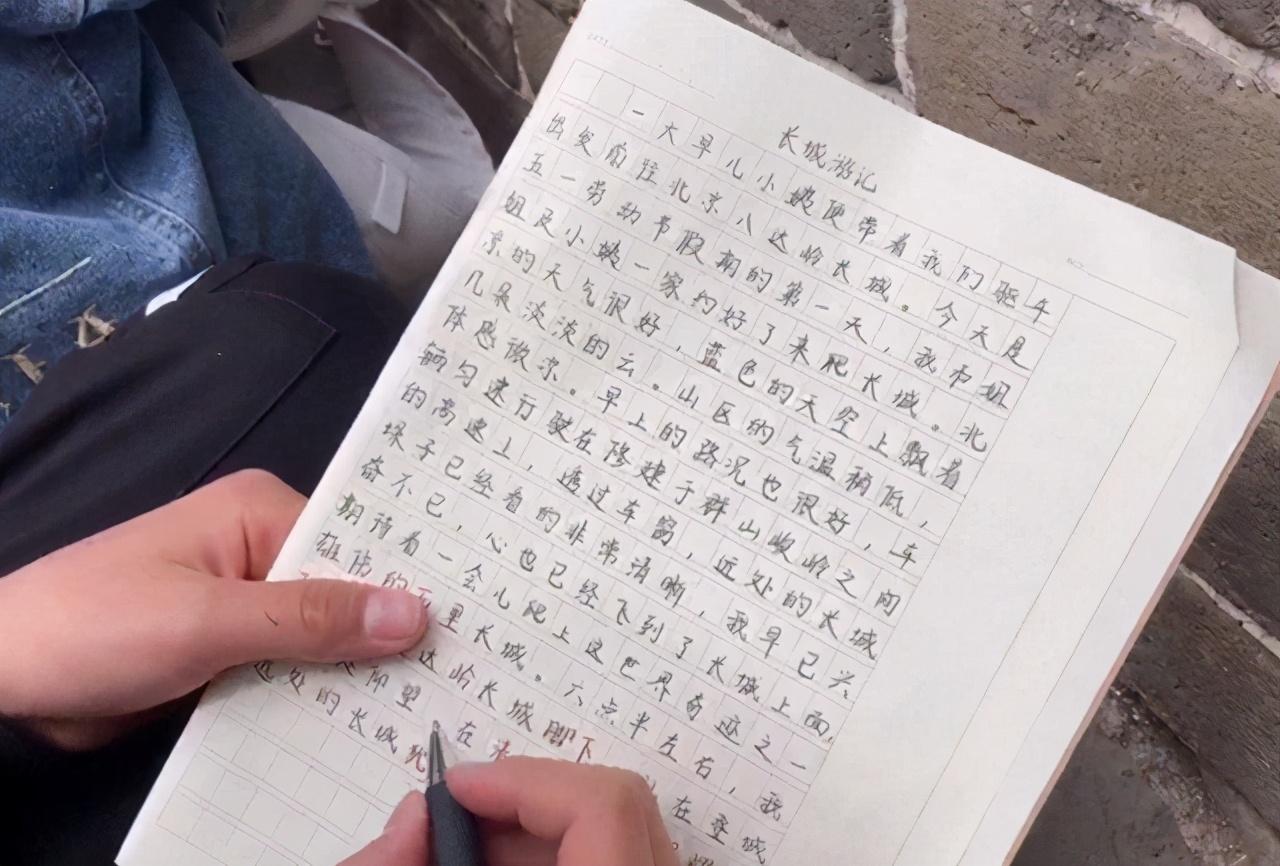 长城游记
一大早儿小姨便带着我们驱车
出发前往北京八达岭长城。今天是
五一劳动节假期的第一天，我和姐
姐及小姨一家约好了来爬长城。北
京的天气很好，蓝色的天空上飘着
几朵淡淡的云。山区的气温稍低，
体感微凉。早上的路况也很好，车
辆匀速行驶在修建于群山峻岭之间
的高速上，透过车窗，远处的长城
垛子已经看的非常清晰，我早已兴
奋不已，心也已经飞到了长城上面，
期待着一会儿爬上这世界奇迹之一
雄伟的万里长城。六点半左右，我
达岭长城脚下 在登城
仰望 在
远处的长城犹